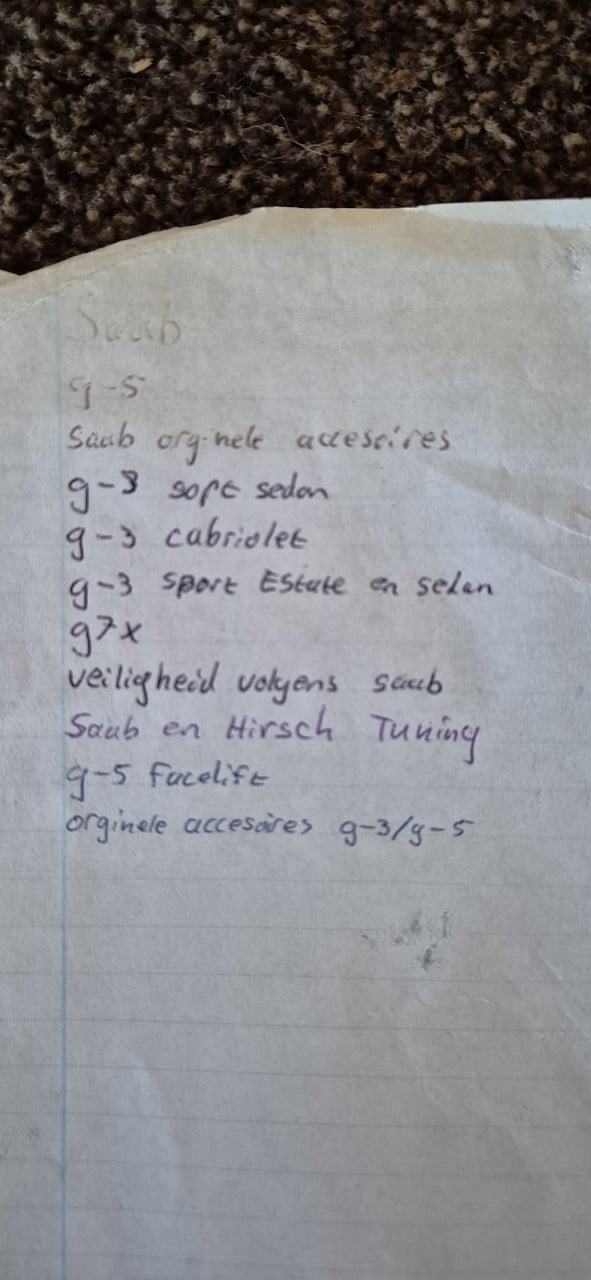 Saab
9-5
Saab orginele accesoires
9-3 sport sedan
9-3 cabriolet
9-3 Sport Estate en sedan
97x
veiligheid volgens saab
Saab en Hirsch Tuning
9-5 Facelift
orginele accesoires 9-3/9-5